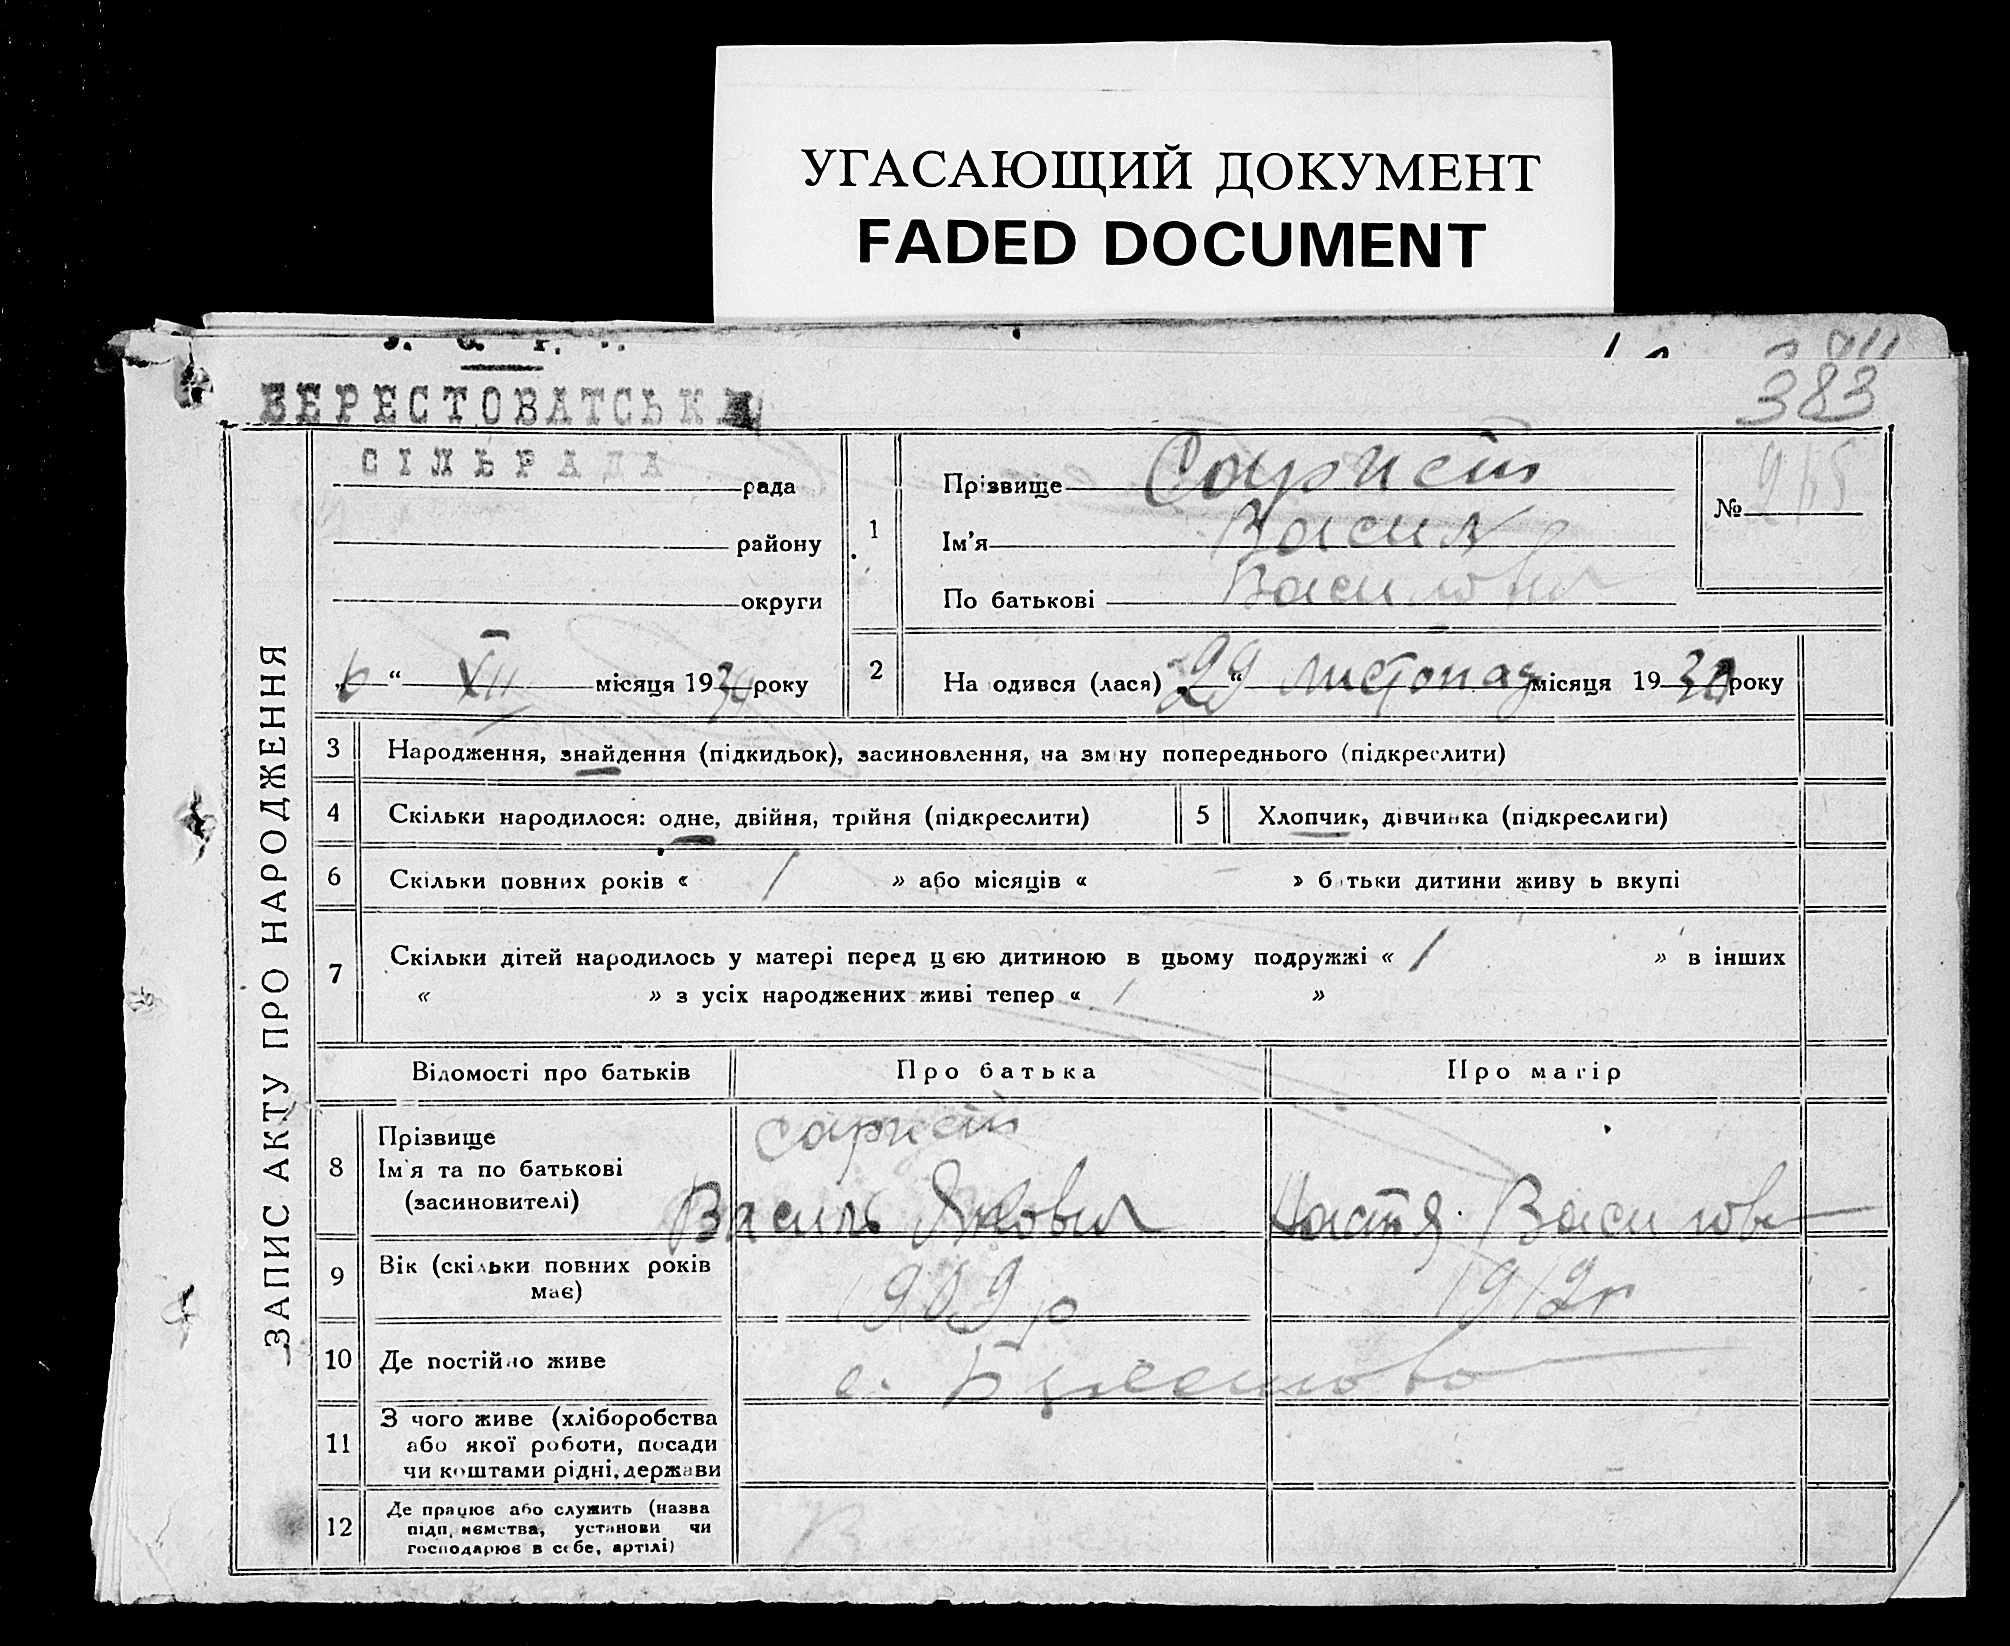 УГАСАЮЩИЙ ДОКУМЕНТ
FADED DOCUMENT
383
БЕРЕСТОВАТСЬКА
СІЛЬРАДА
рада
району
округи
6 " XII місяця 1930 року
ЗАПИС АКТУ ПРО НАРОДЖЕННЯ
1
Прізвище
Ім'я Василь
По батькові Васильович
№ 265
2 На одився (лася) 29 " листопад місяця 1930 року
3 Народження, знайдення (підкидьок), засиновлення, на зм ну попереднього (підкреслити)
4 Скільки народилося: одне, двійня, трійня (підкреслити)
5 Хлопчик, дівчинка (підкреслити)
6 Скільки повних років « 1 » або місяців « - » б тьки дитини живу ь вкупі
7 Скільки дітей народилось у матері перед цією дитиною в цьому подружжі « 1 » в інших
« » з усіх народжених живі тепер « 1 »
Відомості про батьків
Про батька
Про матір
8 Прізвище
Ім'я та по батькові
(засиновителі)
Сарист
Василь Якович
Настя Василівна
9 Вік (скільки повних років
має)
1909 р
1912 г
10 Де постійно живе
с.
11 З чого живе (хліборобства
або якої роботи, посади
чи коштами рідні, держави
12 Де працює або служить (назва
підп, иємства, установи чи
господарює в себе, артілі)